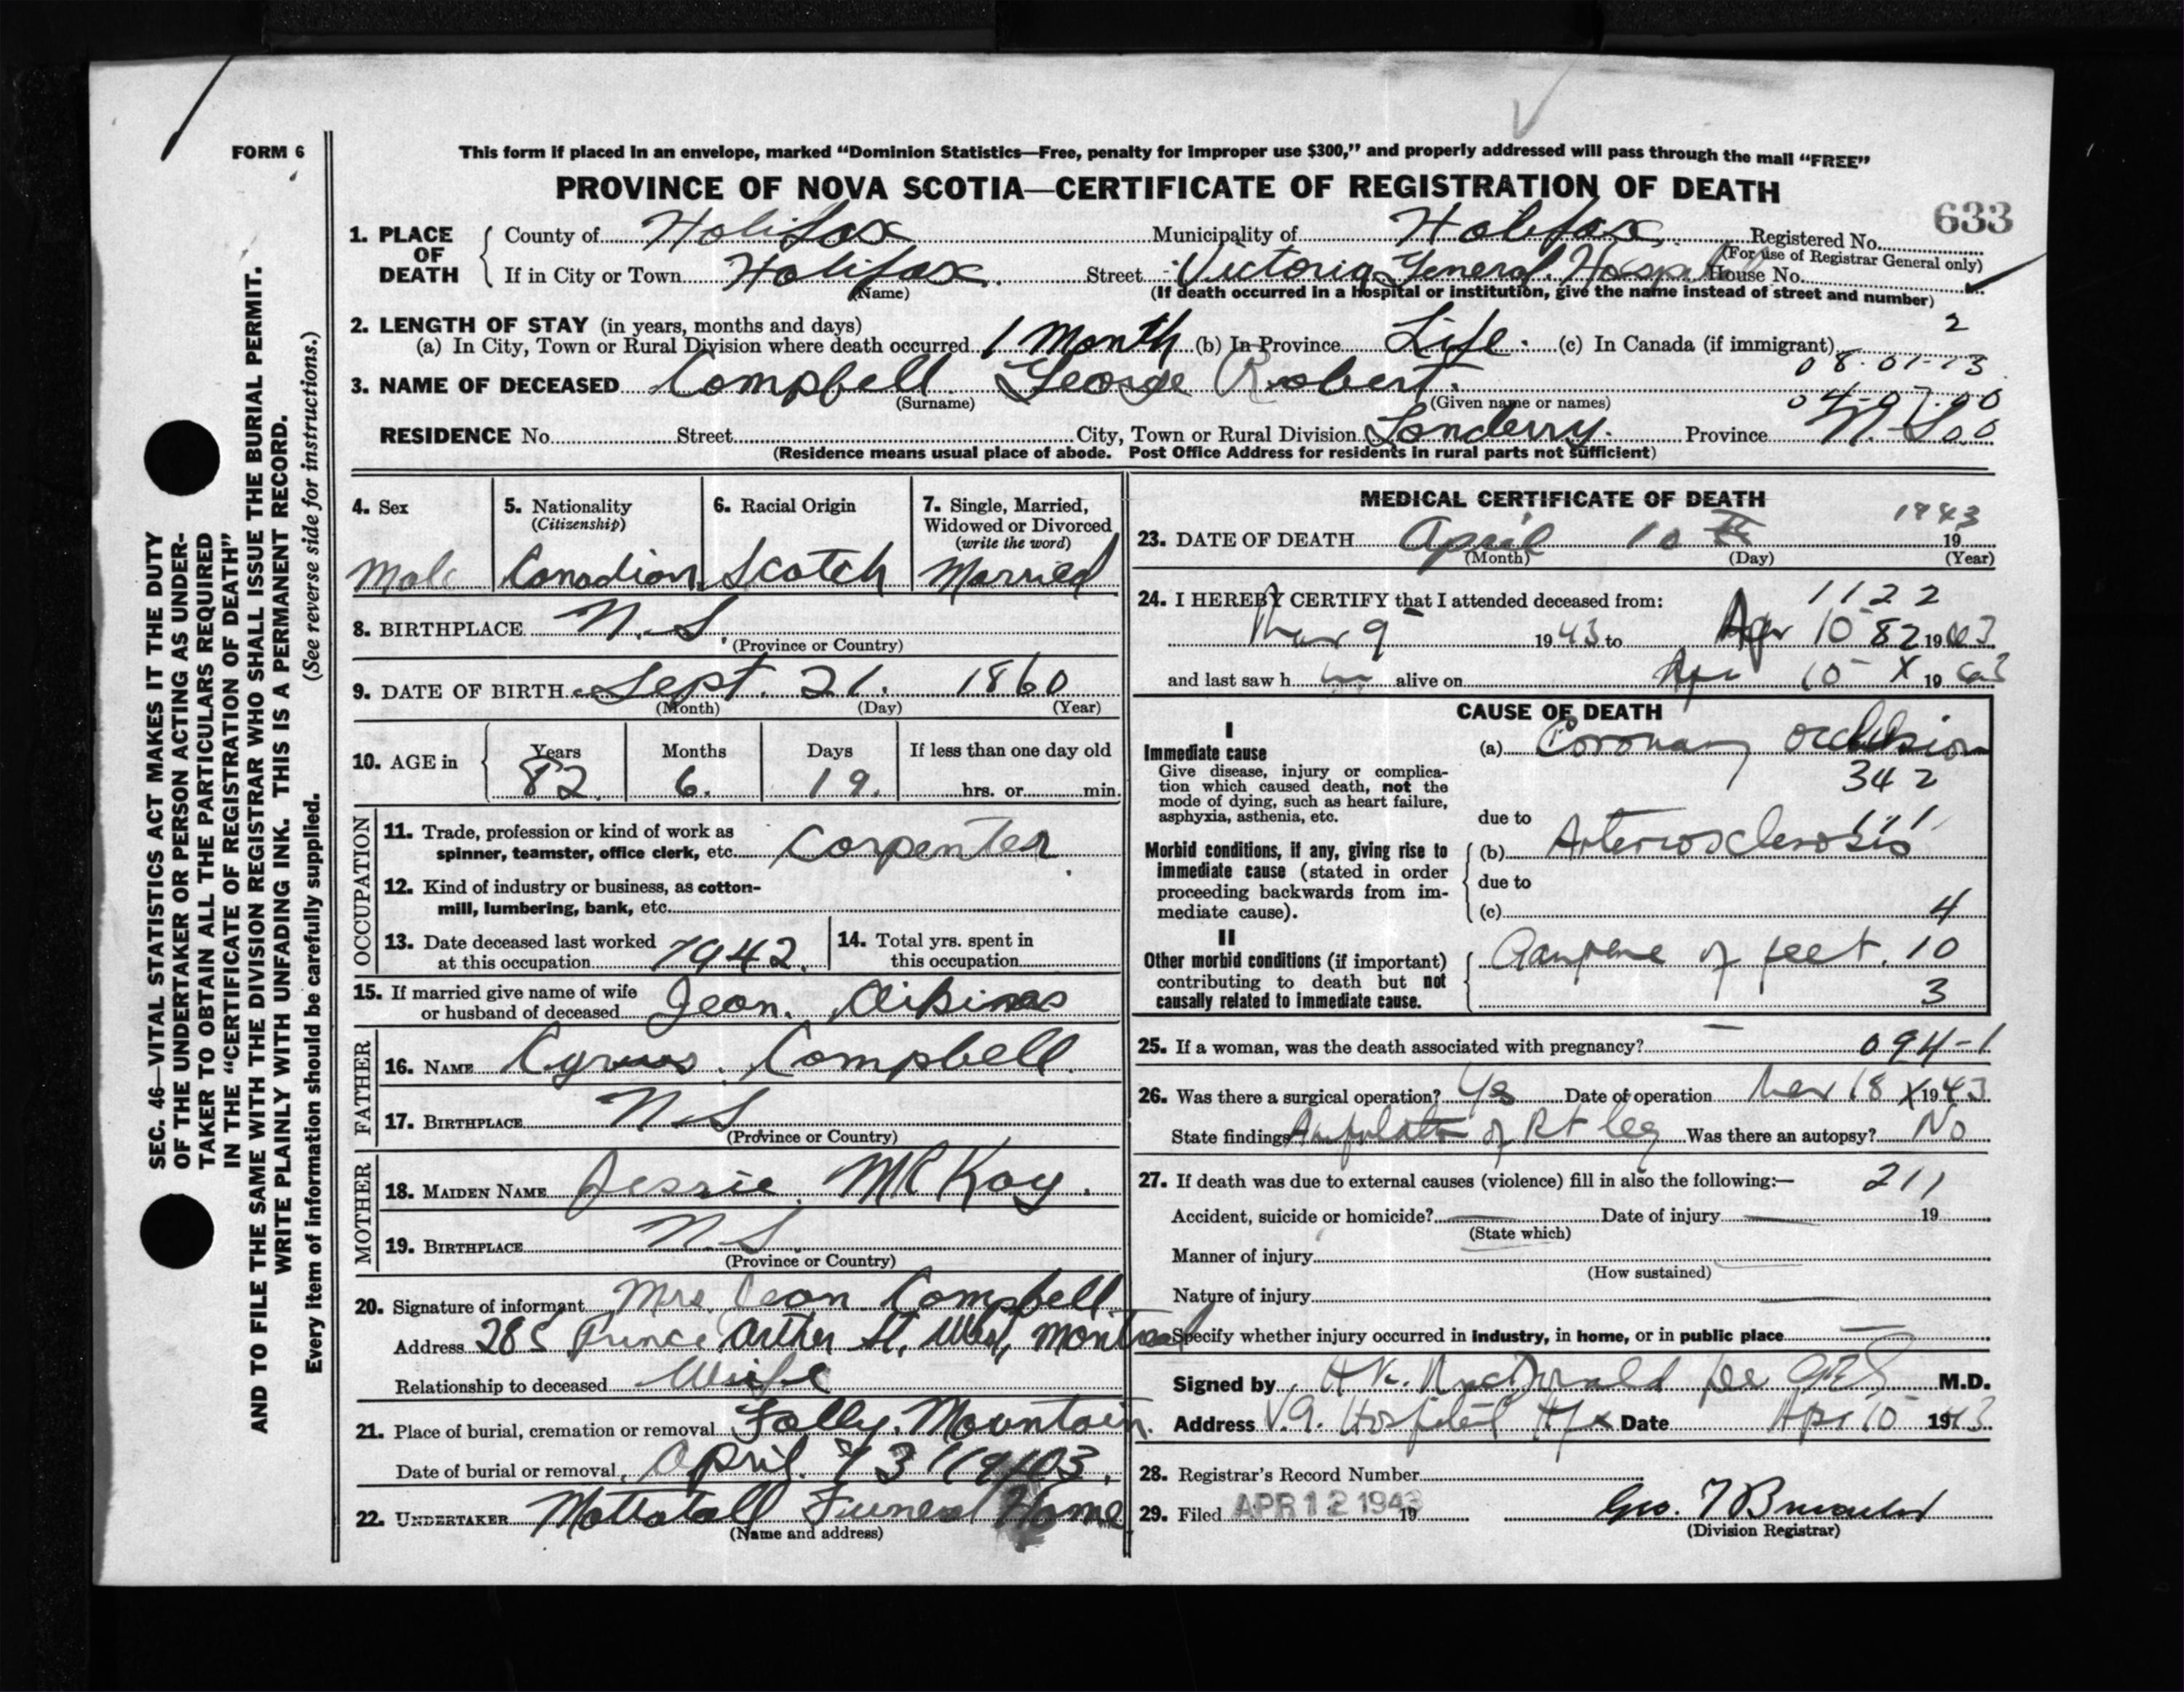 FORM 6
This form if placed in an envelope, marked “Dominion Statistics—Free, penalty for improper use $300,” and properly addressed will pass through the mail “FREE”
PROVINCE OF NOVA SCOTIA—CERTIFICATE OF REGISTRATION OF DEATH
633
1. PLACE OF DEATH County of Halifax Municipality of Halifax Registered No.
(For use of Registrar General only)
If in City or Town Halifax Street Victoria General Hospital House No.
(Name) (If death occurred in a hospital or institution, give the name instead of street and number)
2. LENGTH OF STAY (in years, months and days) 2
(a) In City, Town or Rural Division where death occurred 1 Month (b) In Province Life. (c) In Canada (if immigrant)
08-01-13
3. NAME OF DECEASED Campbell George Robert.
(Surname) (Given name or names)
RESIDENCE No. Street City, Town or Rural Division Londerry. Province N.S.
(Residence means usual place of abode. Post Office Address for residents in rural parts not sufficient)
4. Sex Male
5. Nationality (Citizenship) Canadian
6. Racial Origin Scotch
7. Single, Married, Widowed or Divorced (write the word) Married
8. BIRTHPLACE N.S.
(Province or Country)
9. DATE OF BIRTH Sept. 21. 1860
(Month) (Day) (Year)
10. AGE in Years 82 Months 6. Days 19. If less than one day old hrs. or min.
OCCUPATION
11. Trade, profession or kind of work as
spinner, teamster, office clerk, etc. Carpenter
12. Kind of industry or business, as cotton-
mill, lumbering, bank, etc.
13. Date deceased last worked
at this occupation 1942.
14. Total yrs. spent in
this occupation
15. If married give name of wife
or husband of deceased Jean.
FATHER
16. NAME Cyrus. Campbell.
17. BIRTHPLACE N.S
(Province or Country)
MOTHER
18. MAIDEN NAME Jessie. McKay.
19. BIRTHPLACE N.S.
(Province or Country)
20. Signature of informant Mrs. Jean Campbell
Address 285 Prince Arther St. West, Montreal
Relationship to deceased Wife
21. Place of burial, cremation or removal Folly. Mountain.
Date of burial or removal April. 13 1943.
22. UNDERTAKER Mattatall Funeral Home
(Name and address)
MEDICAL CERTIFICATE OF DEATH
23. DATE OF DEATH April 10th 1943 19
(Month) (Day) (Year)
24. I HEREBY CERTIFY that I attended deceased from: 1122
Mar 9 1943 to Apr 10 82 1943
and last saw h im alive on Apr 10 X 1943
CAUSE OF DEATH
I
Immediate cause
Give disease, injury or complica-
tion which caused death, not the
mode of dying, such as heart failure,
asphyxia, asthenia, etc.
(a) Coronary occlusion
342
due to 111
Morbid conditions, if any, giving rise to
immediate cause (stated in order
proceeding backwards from im-
mediate cause).
(b) Arteriosclerosis
due to
(c) 4
II
Other morbid conditions (if important)
contributing to death but not
causally related to immediate cause.
Gangrene of feet. 10
3
25. If a woman, was the death associated with pregnancy? — 094-1
26. Was there a surgical operation? Yes Date of operation Mar 18 X 1943
State findings Amputation of Rt leg Was there an autopsy? No
27. If death was due to external causes (violence) fill in also the following:— 211
Accident, suicide or homicide? Date of injury 19
(State which)
Manner of injury
(How sustained)
Nature of injury
Specify whether injury occurred in industry, in home, or in public place
Signed by MacDonald per M.D.
Address V.G. Hospital Hfx Date Apr 10 1943
28. Registrar's Record Number
29. Filed APR 12 1943 19 Geo.
(Division Registrar)
SEC. 46—VITAL STATISTICS ACT MAKES IT THE DUTY
OF THE UNDERTAKER OR PERSON ACTING AS UNDER-
TAKER TO OBTAIN ALL THE PARTICULARS REQUIRED
IN THE “CERTIFICATE OF REGISTRATION OF DEATH”
AND TO FILE THE SAME WITH THE DIVISION REGISTRAR WHO SHALL ISSUE THE BURIAL PERMIT.
WRITE PLAINLY WITH UNFADING INK. THIS IS A PERMANENT RECORD.
Every item of information should be carefully supplied. (See reverse side for instructions.)